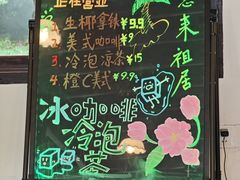 正在营业
1. 生椰拿铁 ¥9.9
2. 美式咖啡 ¥9
3. 冷泡凉茶 ¥15
4. 橙C美式 ¥9.9
来祖居
冰咖啡
冷泡茶